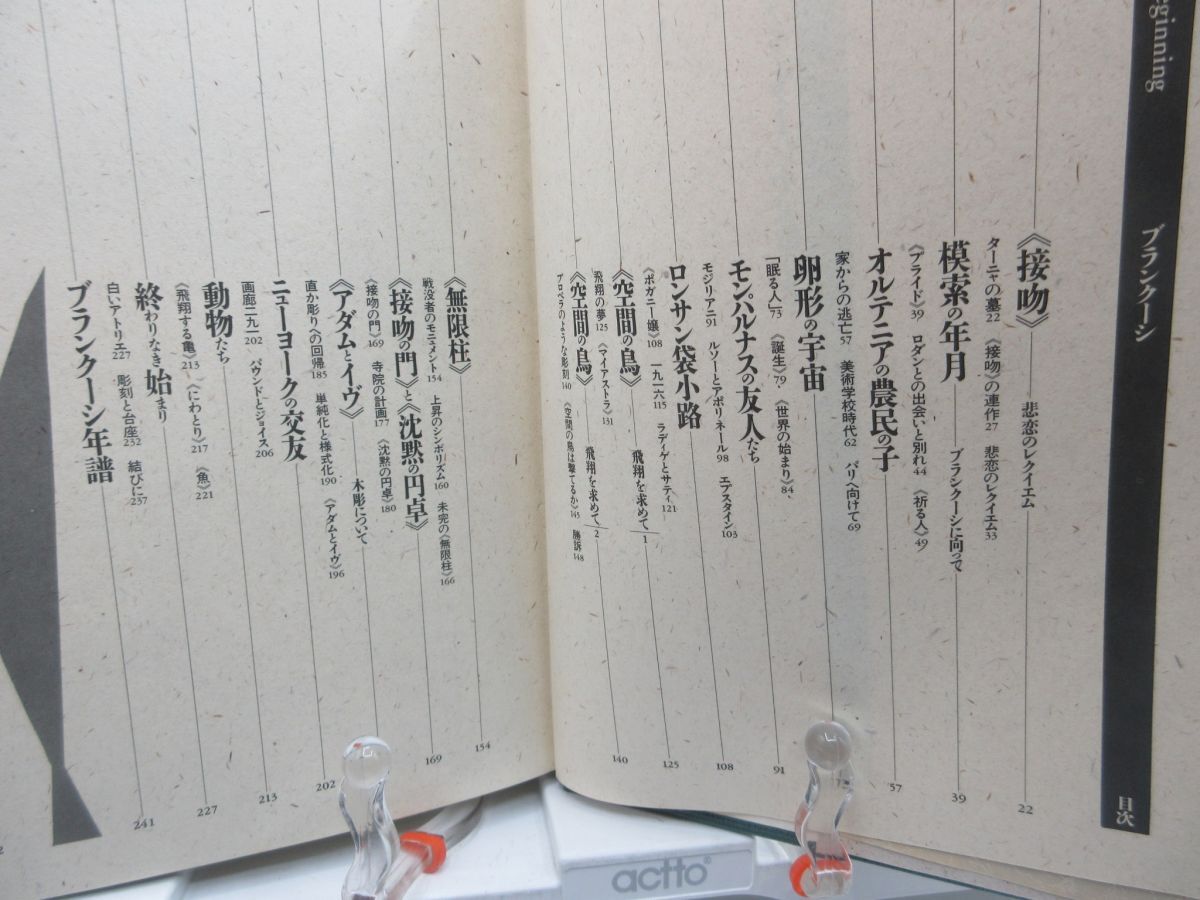 eginning
ブランクーシ
目次
《接吻》――悲恋のレクイエム 22
ターニャの墓22 《接吻》の連作27 悲恋のレクイエム33
模索の年月――ブランクーシに向って 39
《プライド》39 ロダンとの出会いと別れ44 《祈る人》49
オルテニアの農民の子 57
家からの逃亡57 美術学校時代62 パリへ向けて69
卵形の宇宙
「眠る人」73 《誕生》79 《世界の始まり》84
モンパルナスの友人たち 91
モジリアニ91 ルソーとアポリネール98 エプスタイン103
ロンサン袋小路 108
《ポガニー嬢》108 一九一六115 ラディゲとサティ121
《空間の鳥》――飛翔を求めて/1 125
飛翔の夢125 《マイアストラ》131
《空間の鳥》――飛翔を求めて/2 140
プロペラのような彫刻140 《空間の鳥は撃てるか》145 勝訴148
《無限柱》 154
戦没者のモニュメント154 上昇のシンボリズム160 未完の《無限柱》166
《接吻の門》と《沈黙の円卓》 169
《接吻の門》169 寺院の計画177 《沈黙の円卓》180
《アダムとイヴ》――木彫について
直か彫りへの回帰185 単純化と様式化190 《アダムとイヴ》196
ニューヨークの交友 202
画廊二九一202 パウンドとジョイス206
動物たち 213
《飛翔する亀》213 《にわとり》217 《魚》221
終わりなき始まり 227
白いアトリエ227 彫刻と台座232 結びに237
ブランクーシ年譜 241
2
actto